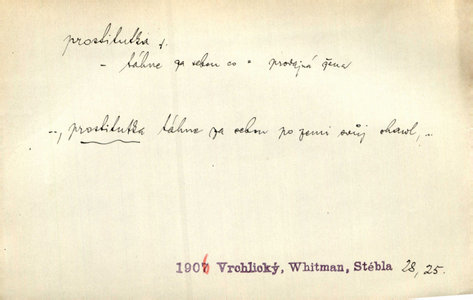 prostitutka f.
- táhne za sebou co = prodajná žena
..., prostitutka táhne za sebou po zemi svůj shawl, ..
1906 Vrchlický, Whitman, Stébla 28, 25.